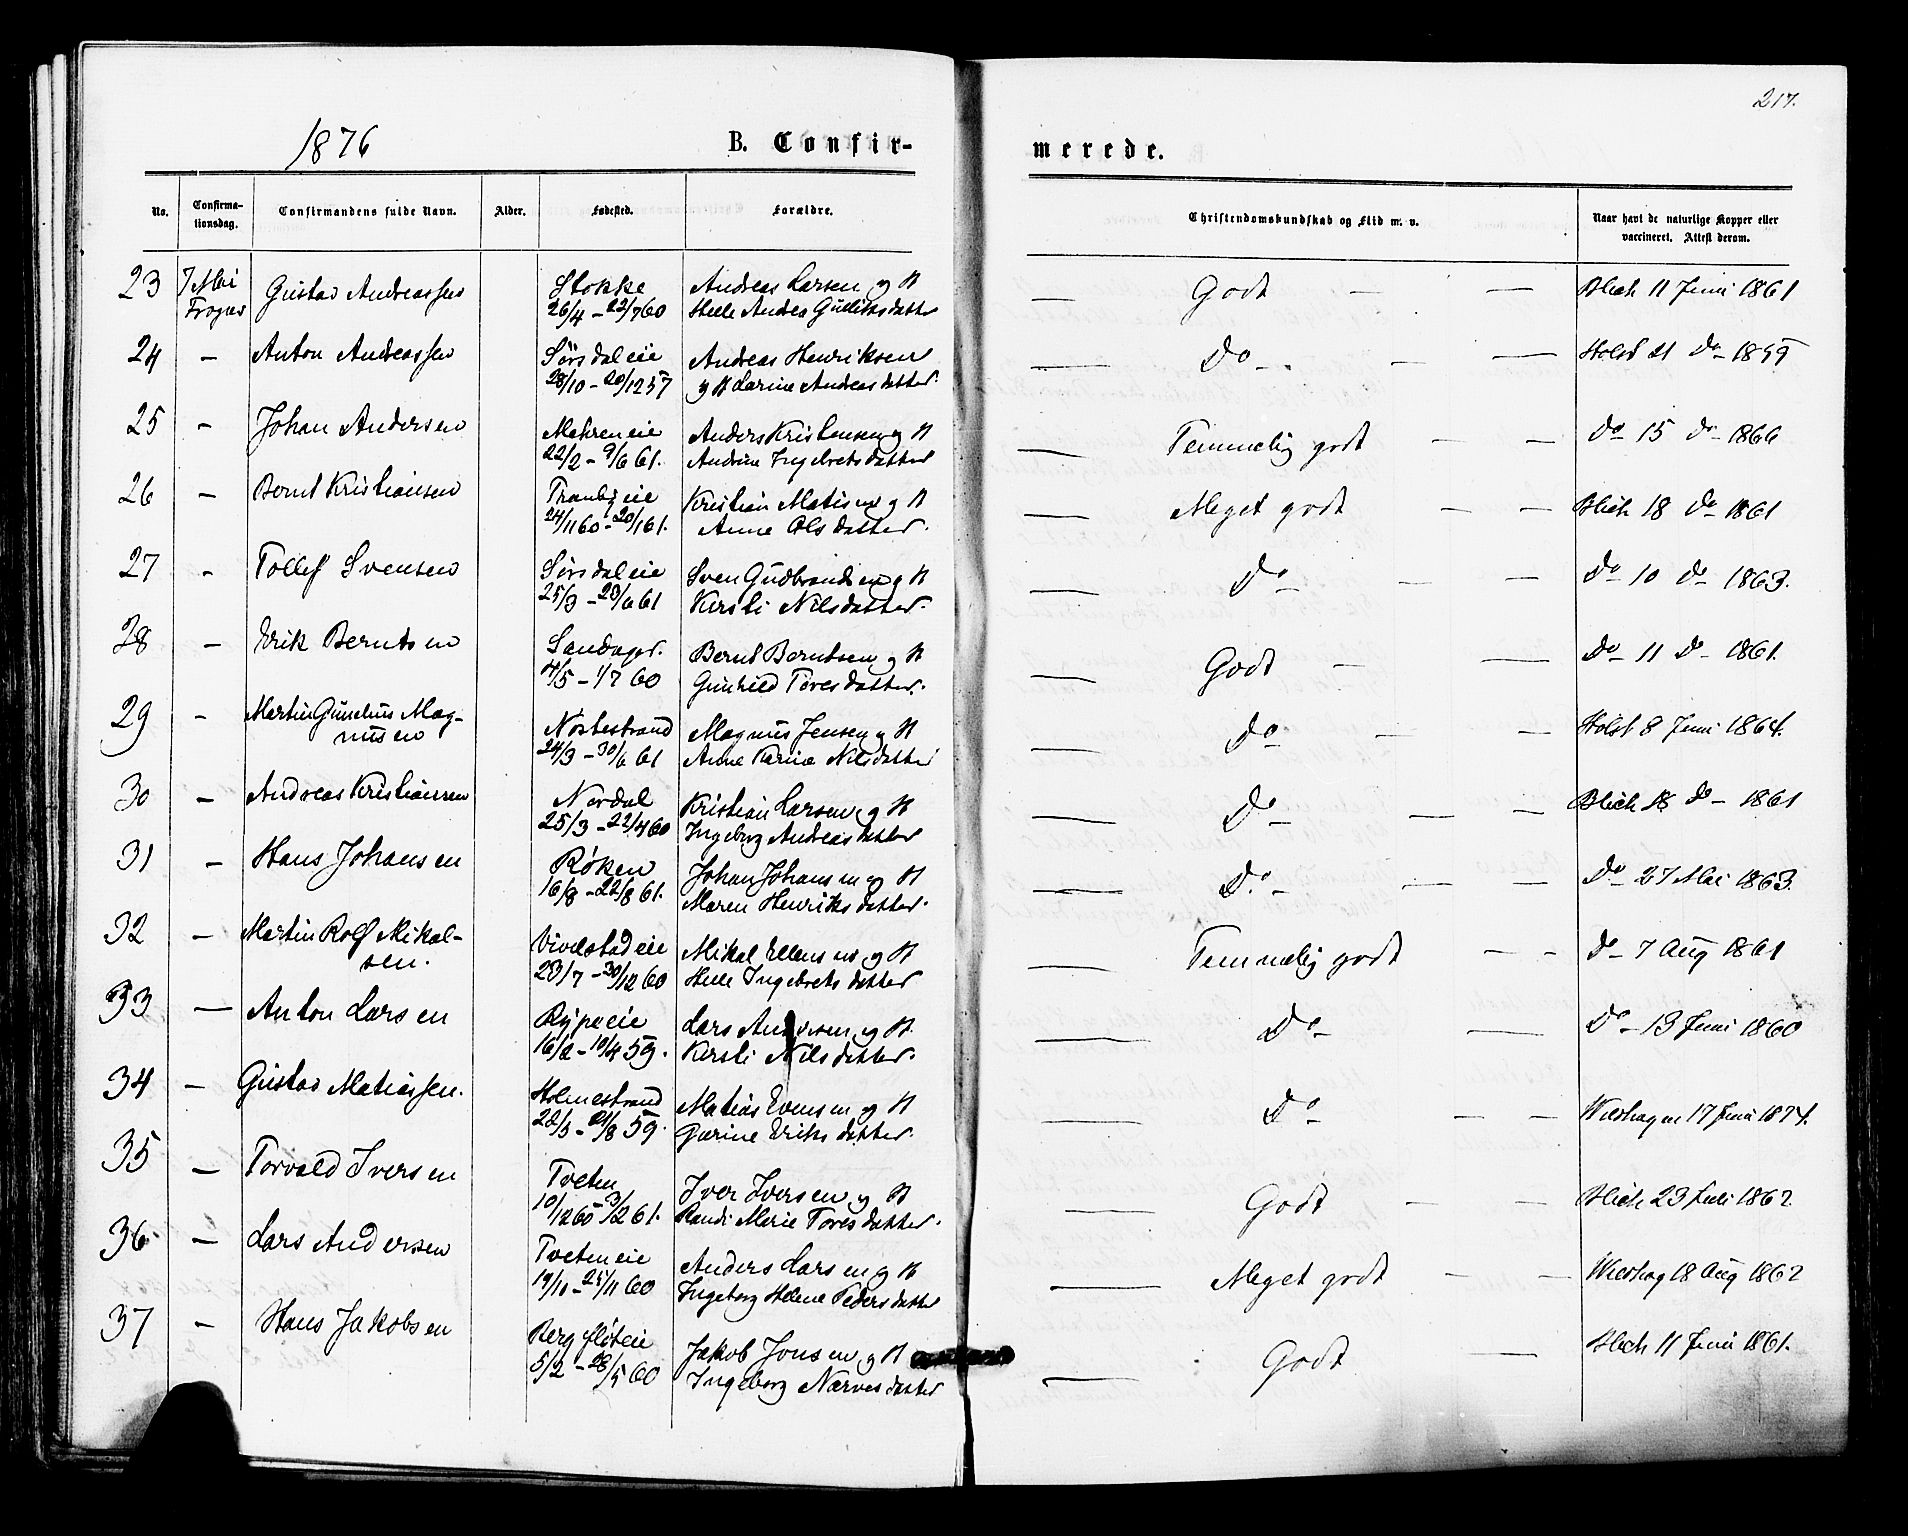 217.
1876
B. Confir-
merede.
No.
Confirma-
tionsdag.
Confirmandens fulde Navn.
Alder.
Fødested.
Forældre.
Christendomskundskab og Flid m. v.
Naar havt de naturlige Kopper eller
vaccineret. Attest derom.
23 7 Mai Gustav Andreassen Stokke Andreas Larsen og H — Godt — — Blich 11 Juni 1861
Frogner 26/4 – 22/7 60 Helle Andrea Gulliksdatter
24 – Anton Andreassen Sørsdal eie Andreas Henriksen — Do – — — Holst 21 Do – 1859
28/10 – 20/12 57 og H Larine Andreasdatter.
25 – Johan Andersen Mehren eie Anders Kristensen og H — Temmelig godt — — Do 15 Do – 1866
22/2 – 9/6 61. Andrine Ingebretsdatter
26 – Bernt Kristiansen eie Kristian og H — Meget godt — — Blich 18 Do – 1861
24/11 60 – 20/1 61. Anne Olsdatter.
27 – Tollef Svensen Sørsdal eie Sven Gudbrandsen og H — Do – — — Do – 10 Do – 1863.
25/3 – 23/6 61 Kirsti Nilsdatter.
28 – Erik Berntsen Bernt Berntsen og H — Godt — — Do – 11 Do – 1861.
4/5 – 1/7 60 Gunhild Toresdatter.
29 – Martin Gunelius Mag- Nordbestrand Magnus Jensen og H — Do – — — Holst 8 Juni 1864.
nusen 24/3 – 30/6 61 Anne Karine Nilsdatter
30 – Andreas Kristiansen Nordal Kristian Larsen og H — Do – — — Blich 18 Do – 1861
25/3 – 22/4 60 Ingeborg Andreasdatter
31 – Hans Johansen Røken Johan Johansen og H — Do. – — — Do – 27 Mai 1863.
16/3 – 22/8 61. Maren Henriksdatter.
32 – Martin Rolf Mikal- Vivelstad eie Mikal Ellensen og H — Temmelig godt — — Do – 7 Aug 1861
sen. 23/7 – 30/12 60 Helle Ingebretsdatter
33 — Anton Larsen Rype eie Lars Andersen og H. — Do – — Do – 13 Juni 1860
16/2 – 10/4 59. Kirsti Nilsdatter.
34 – Gustav Matiassen. Holmestrand Matias Evensen og H — Do – — — 17 Juni 1874.
59. Gurine Eriksdatter.
35 — Torvald Iversen Tveten Iver Iversen og H — Godt — — Blich 23 Juli 1862
10/12 60 – 3/2 61. Randi Marie Toresdatter.
36. – Lars Andersen Tveten eie Anders Larsen og H — Meget godt — — 18 Aug 1862
19/10 – 25/11 60 Ingeborg Helene Pedersdatter
37 – Hans Jakobsen Berg fløteie Jakob Jonsen og H — Godt — Blich 11 Juni 1861.
5/2 – 28/5 60 Ingeborg Narvesdatter